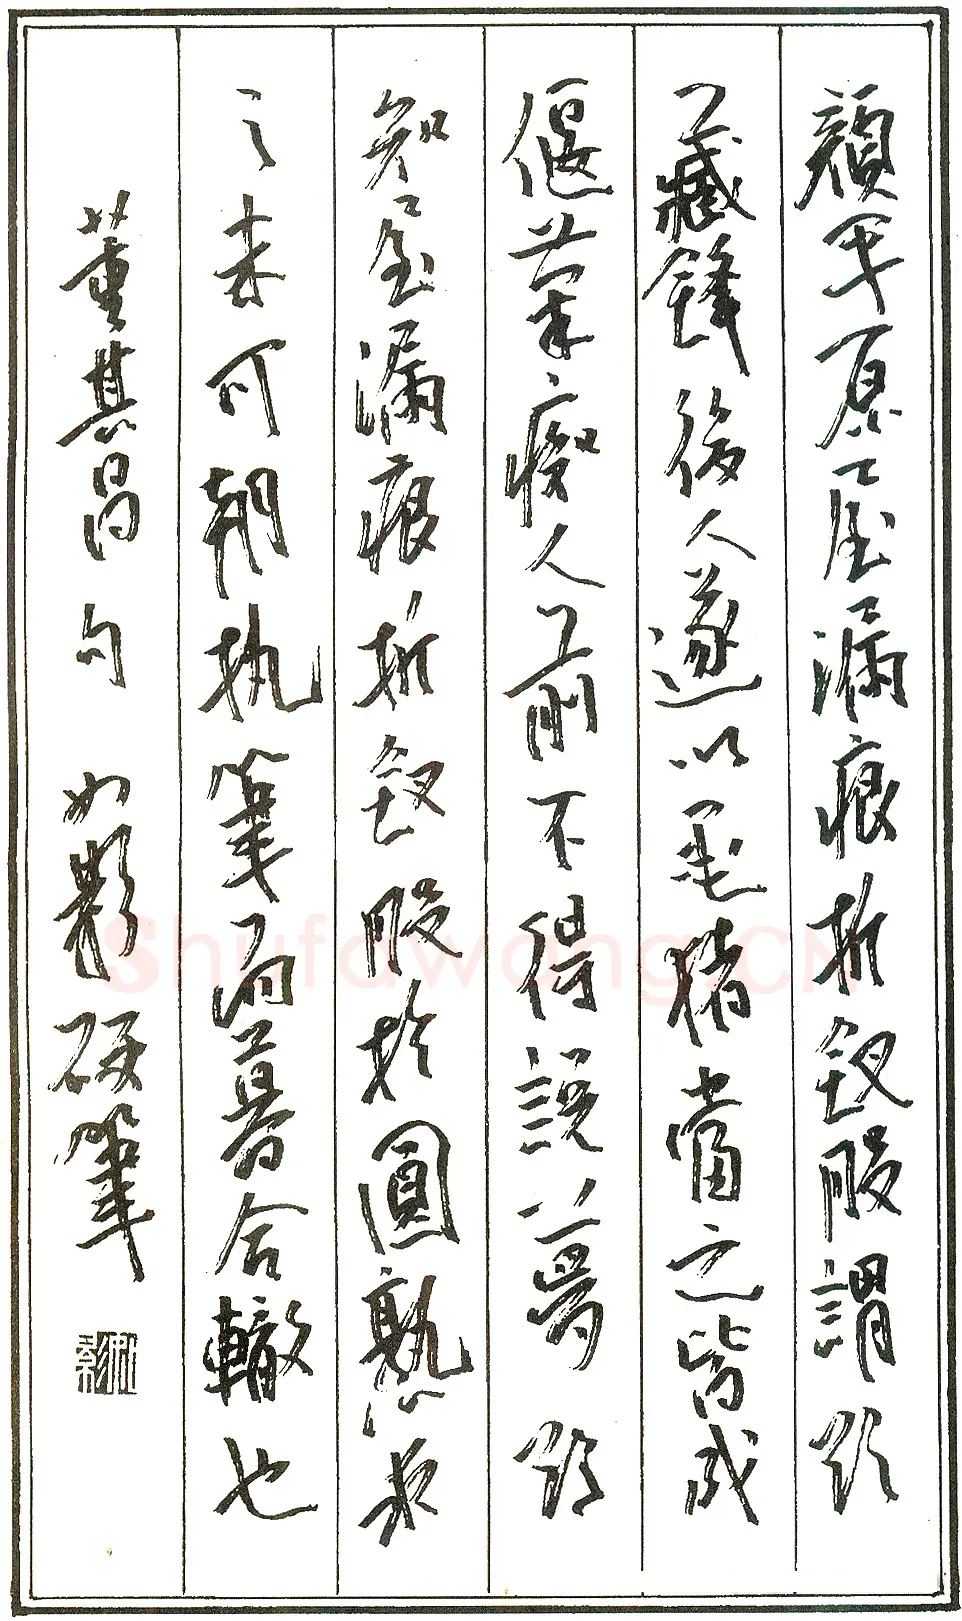 顏平原屋漏痕折釵股謂欲
藏鋒後人遂以墨豬當之皆成
偃筆癡人前不得說夢欲
知屋漏痕折釵股於圓熟求
之未可朝執筆而暮合轍也
董其昌句 如影硬筆
Shufawang.CN